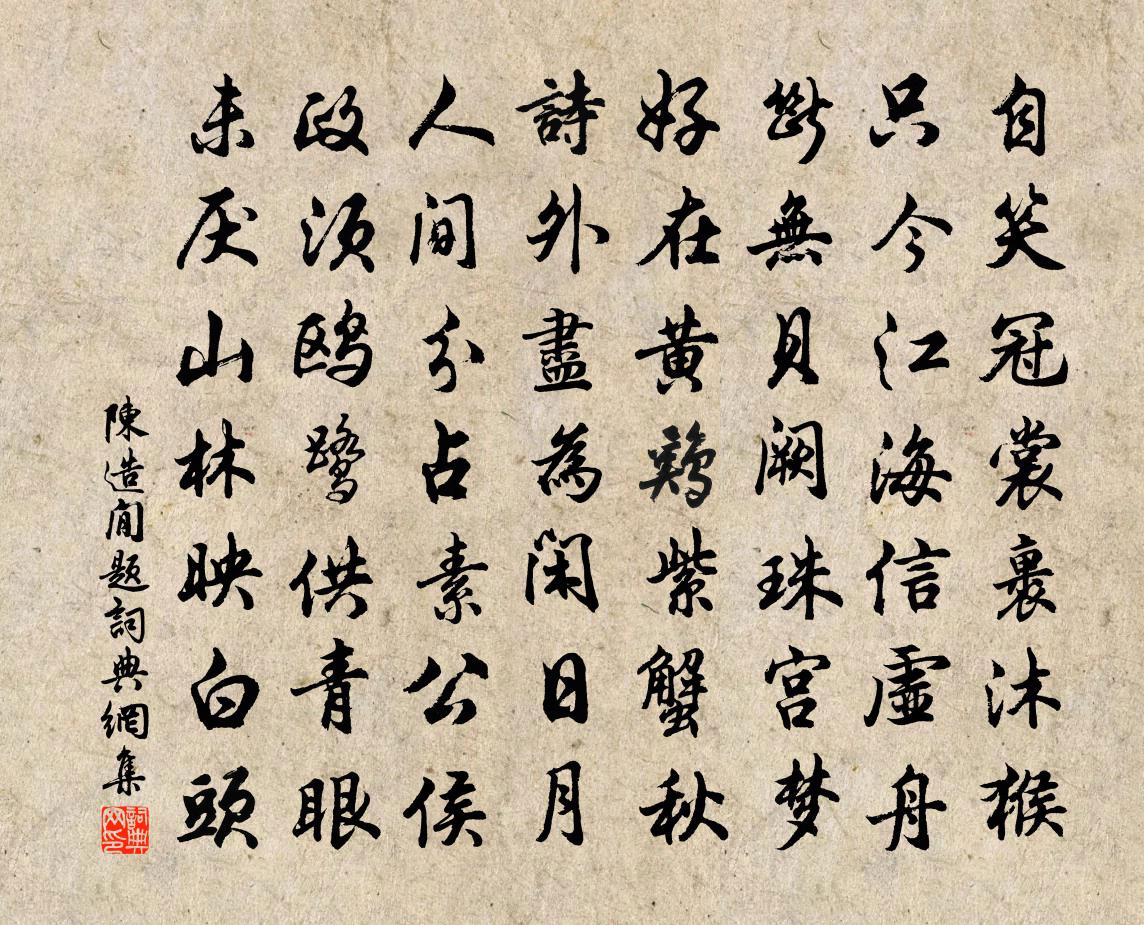 自笑冠裳裹沐猴
只今江海信虛舟
斷無貝闕珠宮梦
好在黄鷄紫蟹秋
詩外盡為閑日月
人間分占素公侯
政須鸥鷺供青眼
未厌山林映白頭
陳造閒題詞典網集
詞典网印